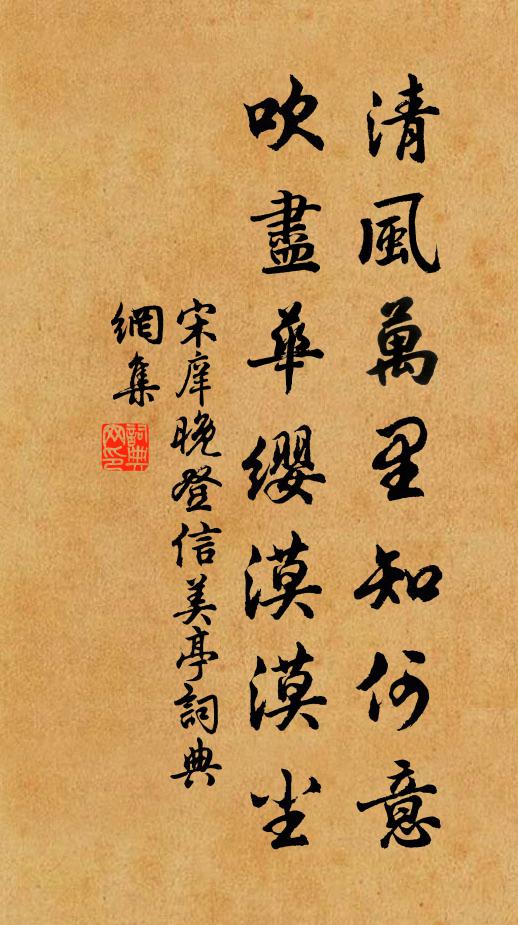 清風萬里知何意
吹盡華纓漠漠尘
宋庠晚登信美亭詞典
網集
詞典
网印